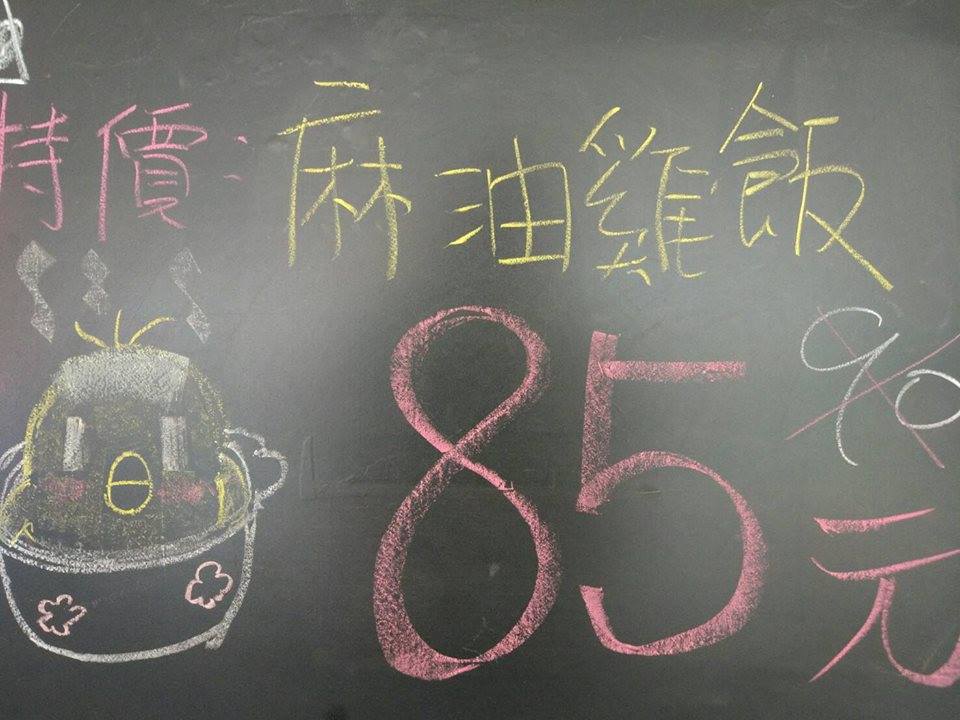 特價：麻油雞飯
85 90
元